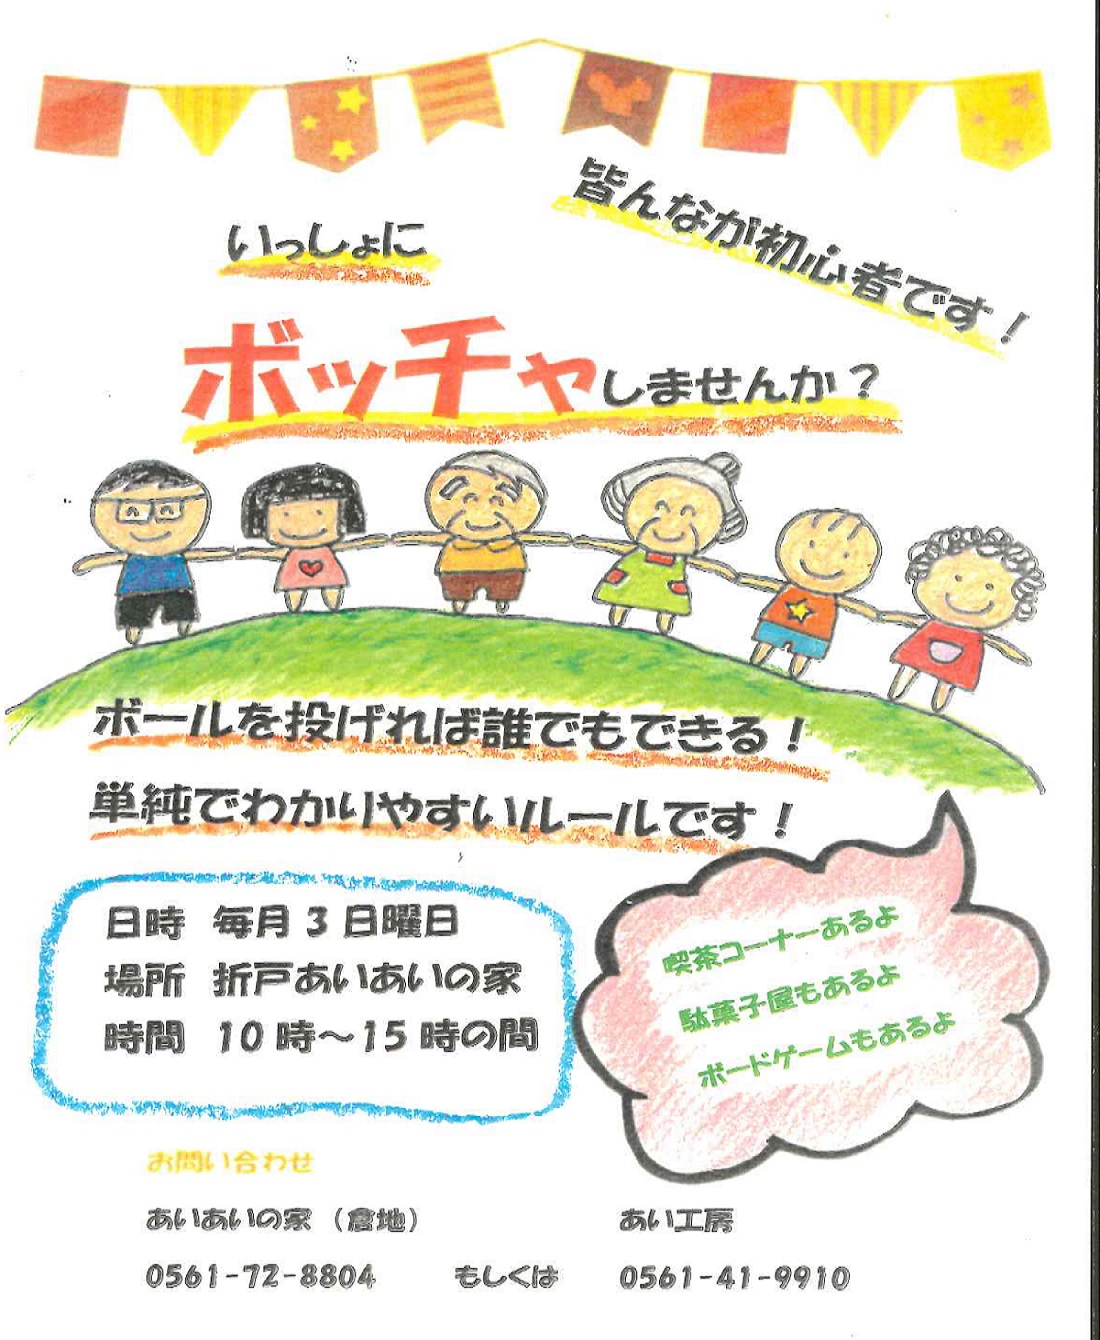 皆んなが初心者です！
いっしょに
ボッチャしませんか？
ボールを投げれば誰でもできる！
単純でわかりやすいルールです！
日時 毎月3日曜日
場所 折戸あいあいの家
時間 10時～15時の間
喫茶コーナーあるよ
駄菓子屋もあるよ
ボードゲームもあるよ
お問い合わせ
あいあいの家（倉地） あい工房
0561-72-8804 もしくは 0561-41-9910